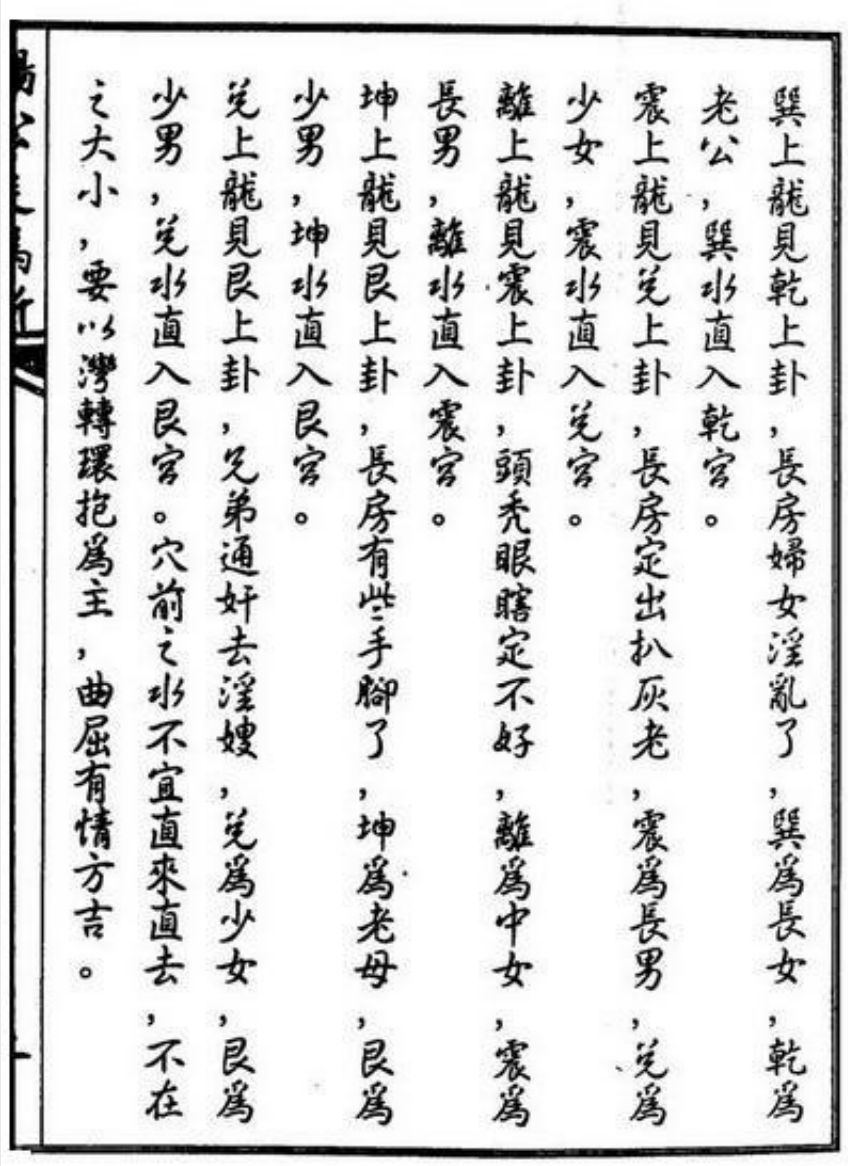 巽上龍見乾上卦，長房婦女淫亂了，巽為長女，乾為
老公，巽水直入乾宮。
震上龍見兌上卦，長房定出扒灰老，震為長男，兌為
少女，震水直入兌宮。
離上龍見震上卦，頭禿眼瞎定不好，離為中女，震為
長男，離水直入震宮。
坤上龍見艮上卦，長房有些手腳了，坤為老母，艮為
少男，坤水直入艮宮。
兌上龍見艮上卦，兄弟通奸去淫嫂，兌為少女，艮為
少男，兌水直入艮宮。穴前之水不宜直來直去，不在
之大小，要以灣轉環抱為主，曲屈有情方吉。